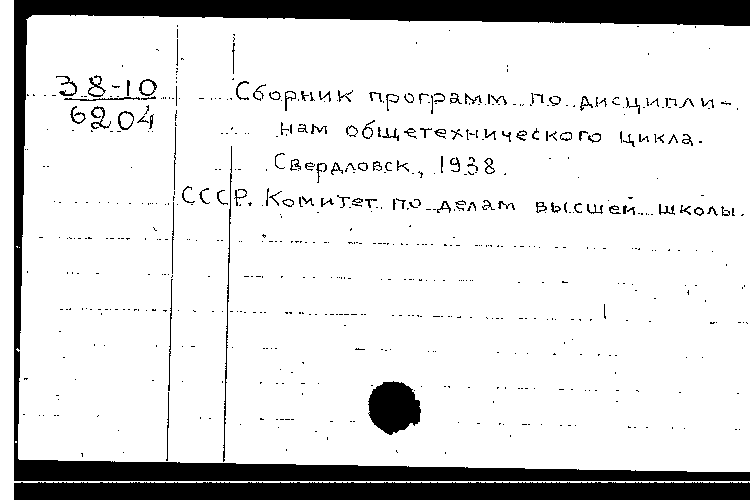 38-10
6204
Сборник программ по дисципли-
нам общетехнического цикла.
Свердловск, 1938.
СССР. Комитет по делам высшей школы.